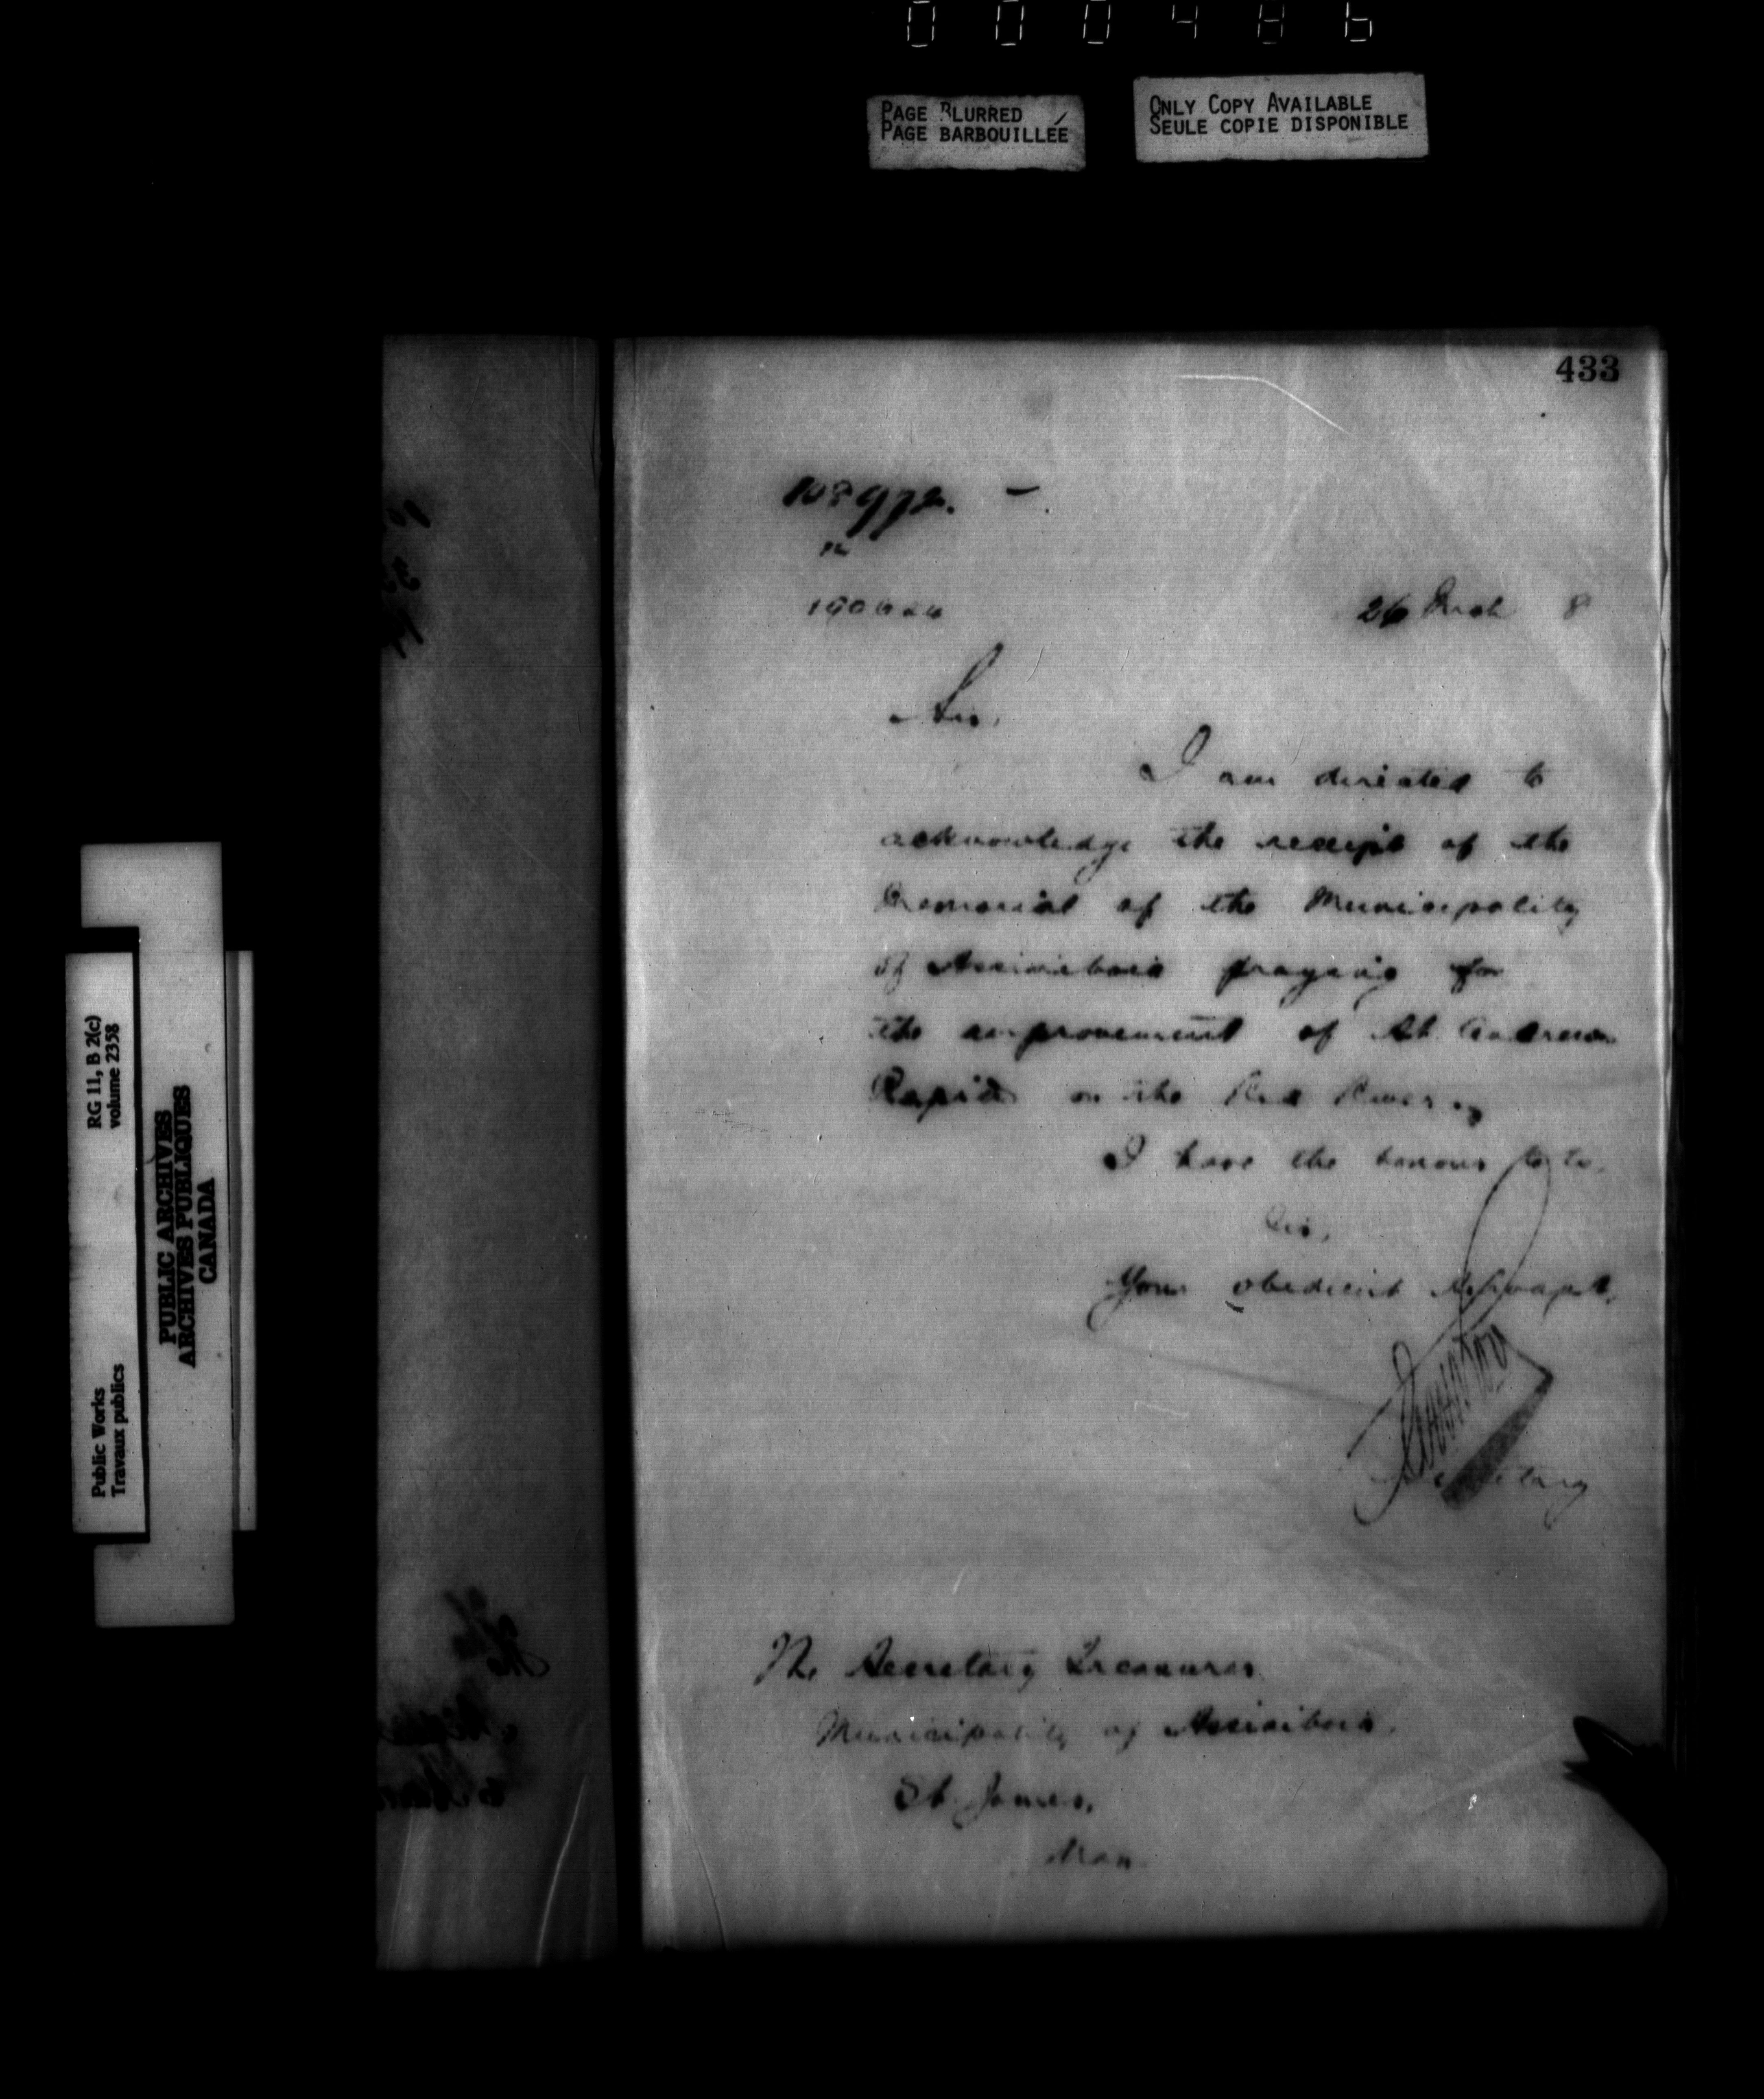 000486
PAGE BLURRED
PAGE BARBOUILLÉE
ONLY COPY AVAILABLE
SEULE COPIE DISPONIBLE
433
26 8
Sir,
I am directed to
acknowledge the receipt of the
Memorial of the Municipality
of Assiniboia praying for
the improvement of St. Andrews
Rapids on the Red River.
I have the honour to be,
Sir,
Your obedient servant,
Secretary
The Secretary Treasurer
Municipality of Assiniboia.
St. James,
Man
RG 11, B 2(c)
volume 2358
Public Works
Travaux publics
PUBLIC ARCHIVES
ARCHIVES PUBLIQUES
CANADA